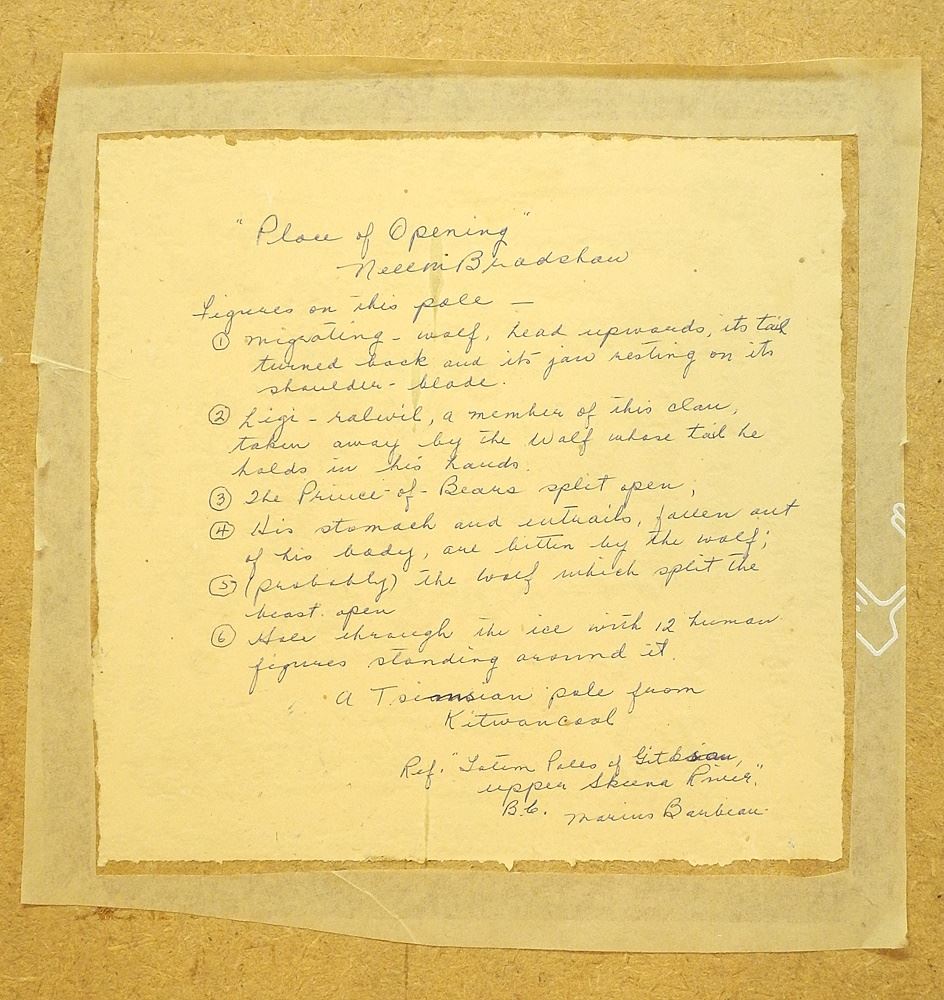 "Place of Opening"
Nell M Bradshaw
Figures on this pole —
① migrating - wolf, head upwards, its tail
turned back and its jaw resting on its
shoulder - blade.
② Ligi - ralwil, a member of this clan,
taken away by the Wolf whose tail he
holds in his hands.
③ The Prince-of-Bears split open,
④ His stomach and entrails, fallen out
of his body, are bitten by the wolf;
⑤ (probably) the wolf which split the
beast open
⑥ Hole through the ice with 12 human
figures standing around it.
A Tsimsian pole from
Kitwancool
Ref. "Totem Poles of Gitksan,
upper Skeena River,"
B.C. Marius Barbeau.